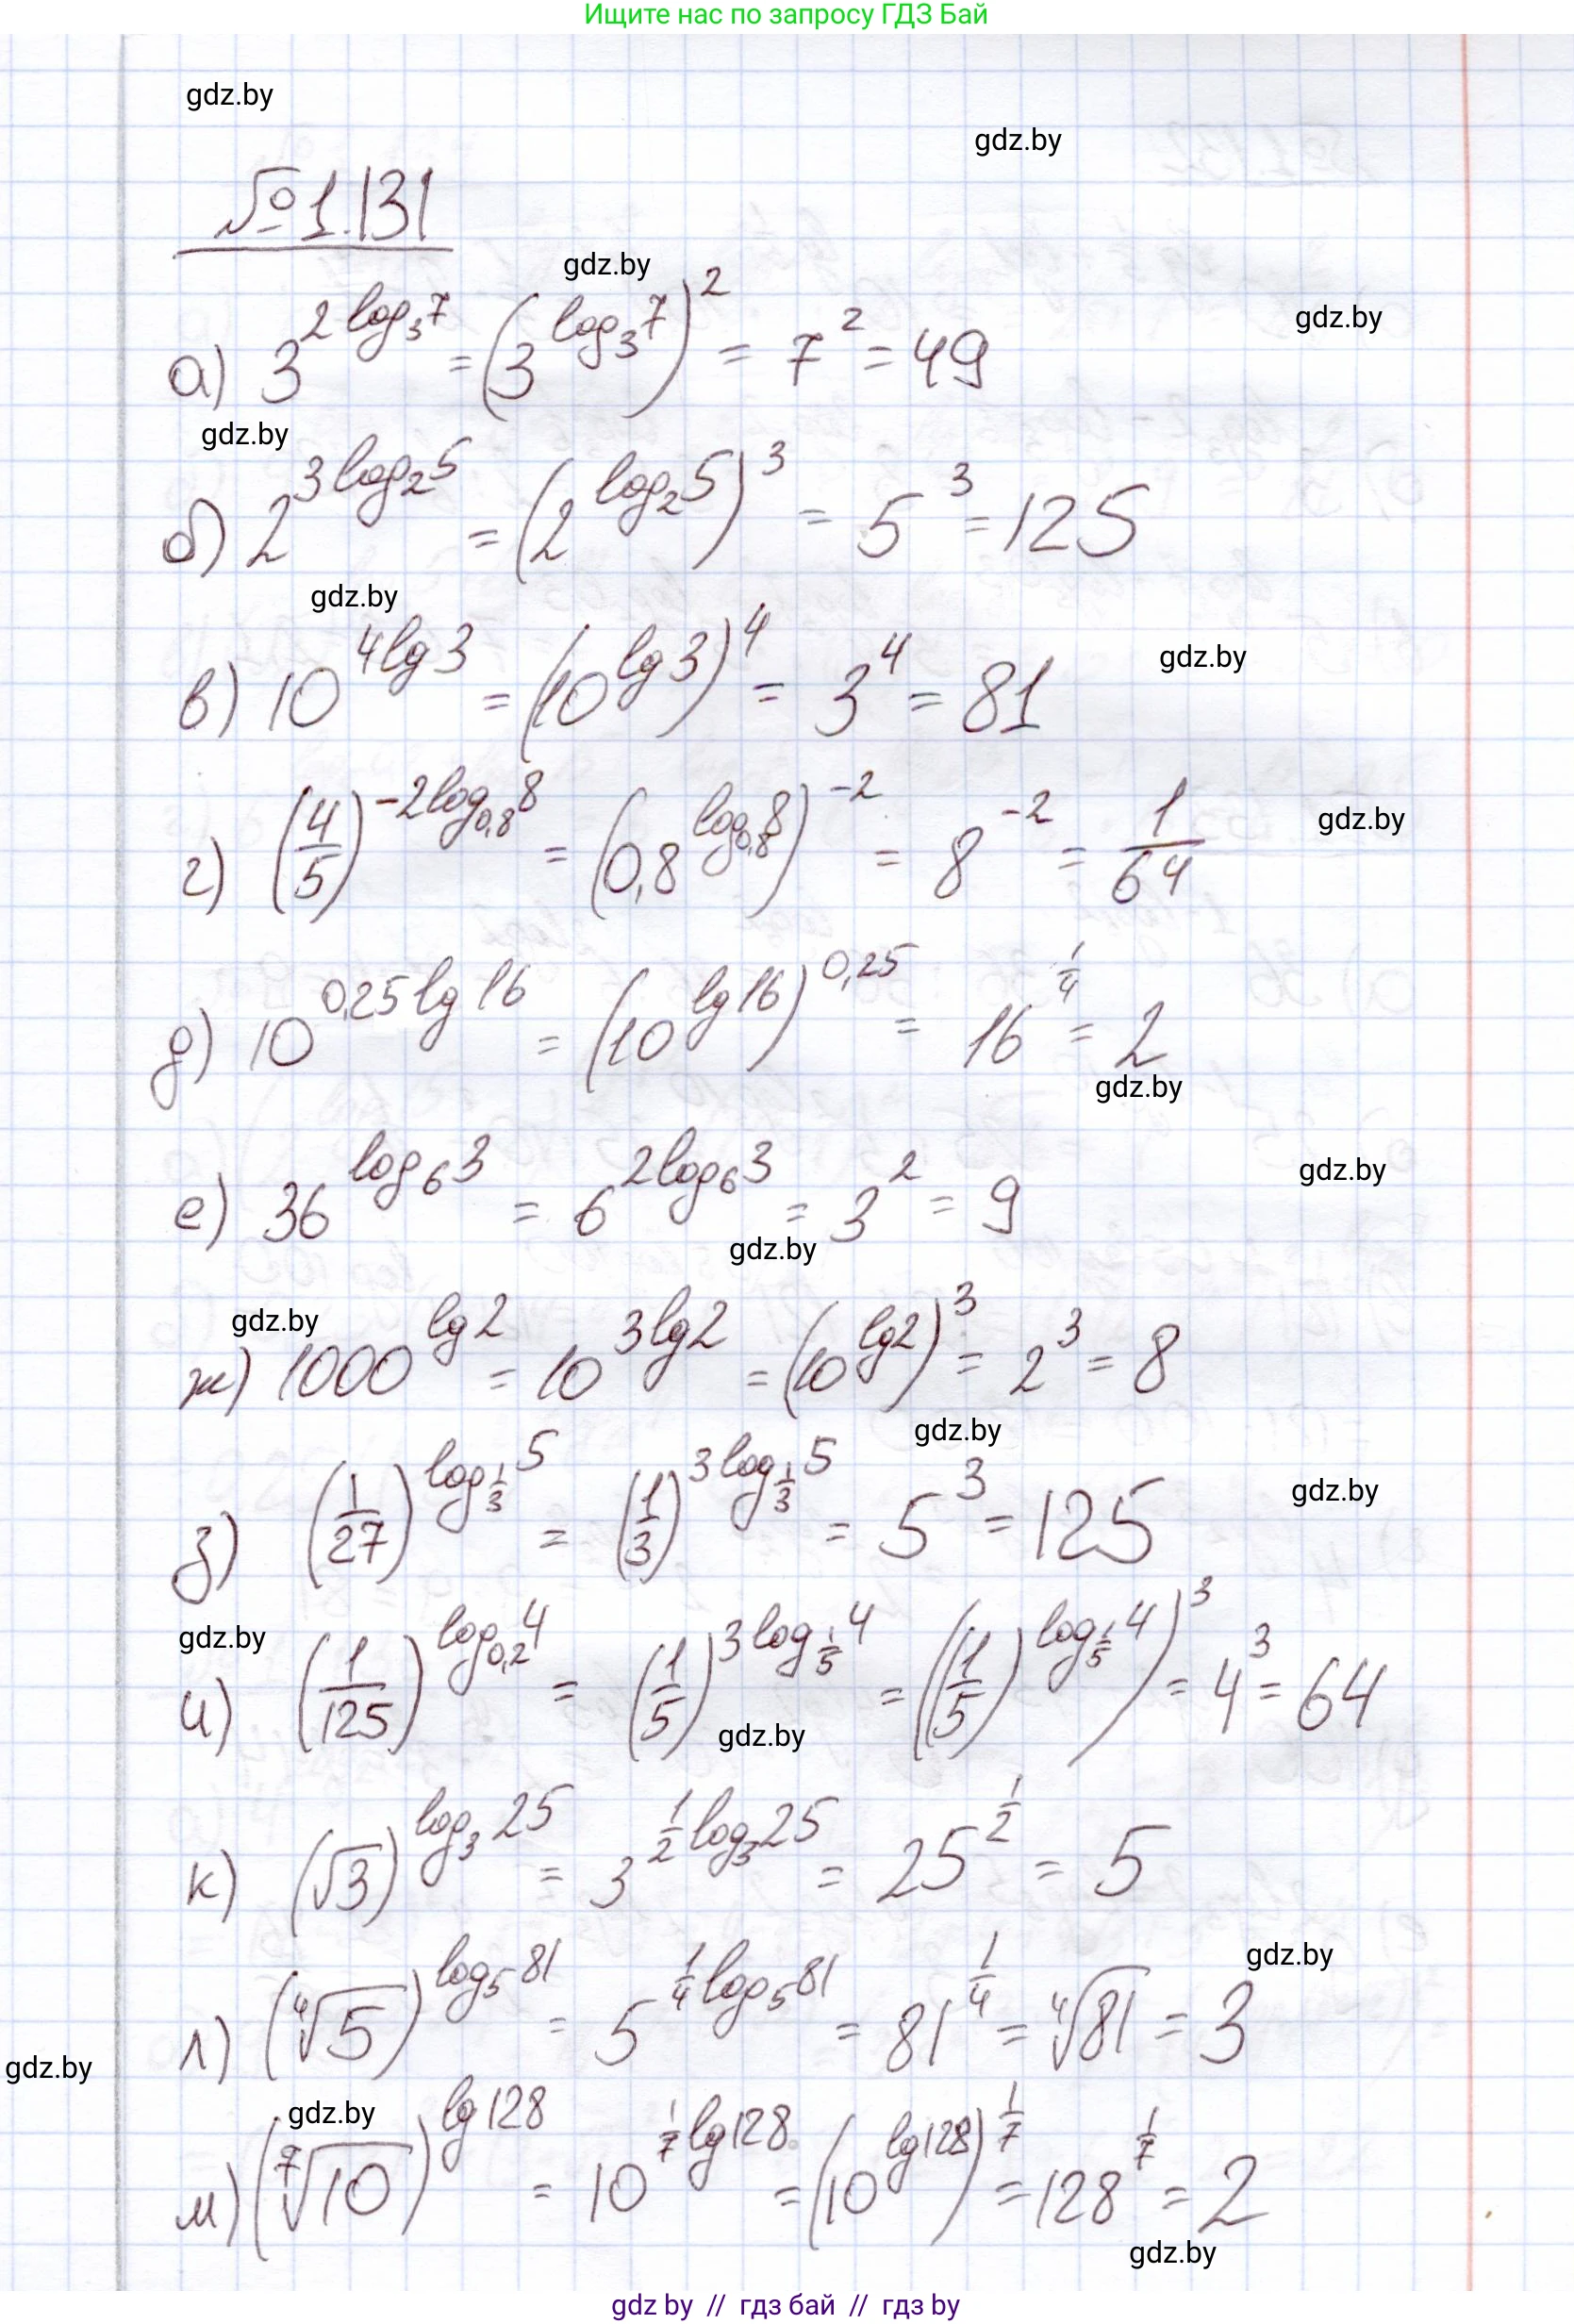 Ищите нас по запросу ГДЗ Бай
gdz.by
gdz.by
№1.131
gdz.by
gdz.by
а) 3^{2log_3 7} = (3^{log_3 7})^2 = 7^2 = 49
gdz.by
б) 2^{3log_2 5} = (2^{log_2 5})^3 = 5^3 = 125
gdz.by
в) 10^{4lg3} = (10^{lg3})^4 = 3^4 = 81
gdz.by
г) (4/5)^{-2log_{0,8}8} = (0,8^{log_{0,8}8})^{-2} = 8^{-2} = 1/64
gdz.by
д) 10^{0,25lg16} = (10^{lg16})^{0,25} = 16^{1/4} = 2
gdz.by
е) 36^{log_6 3} = 6^{2log_6 3} = 3^2 = 9
gdz.by
gdz.by
gdz.by
ж) 1000^{lg2} = 10^{3lg2} = (10^{lg2})^3 = 2^3 = 8
gdz.by
з) (1/27)^{log_{1/3}5} = (1/3)^{3log_{1/3}5} = 5^3 = 125
gdz.by
gdz.by
и) (1/125)^{log_{0,2}4} = (1/5)^{3log_{1/5}4} = ((1/5)^{log_{1/5}4})^3 = 4^3 = 64
gdz.by
к) (√3)^{log_3 25} = 3^{1/2 log_3 25} = 25^{1/2} = 5
gdz.by
л) (⁴√5)^{log_5 81} = 5^{1/4 log_5 81} = 81^{1/4} = ⁴√81 = 3
gdz.by
gdz.by
м) (⁷√10)^{lg128} = 10^{1/7 lg128} = (10^{lg128})^{1/7} = 128^{1/7} = 2
gdz.by
gdz by // гдз бай // гдз by